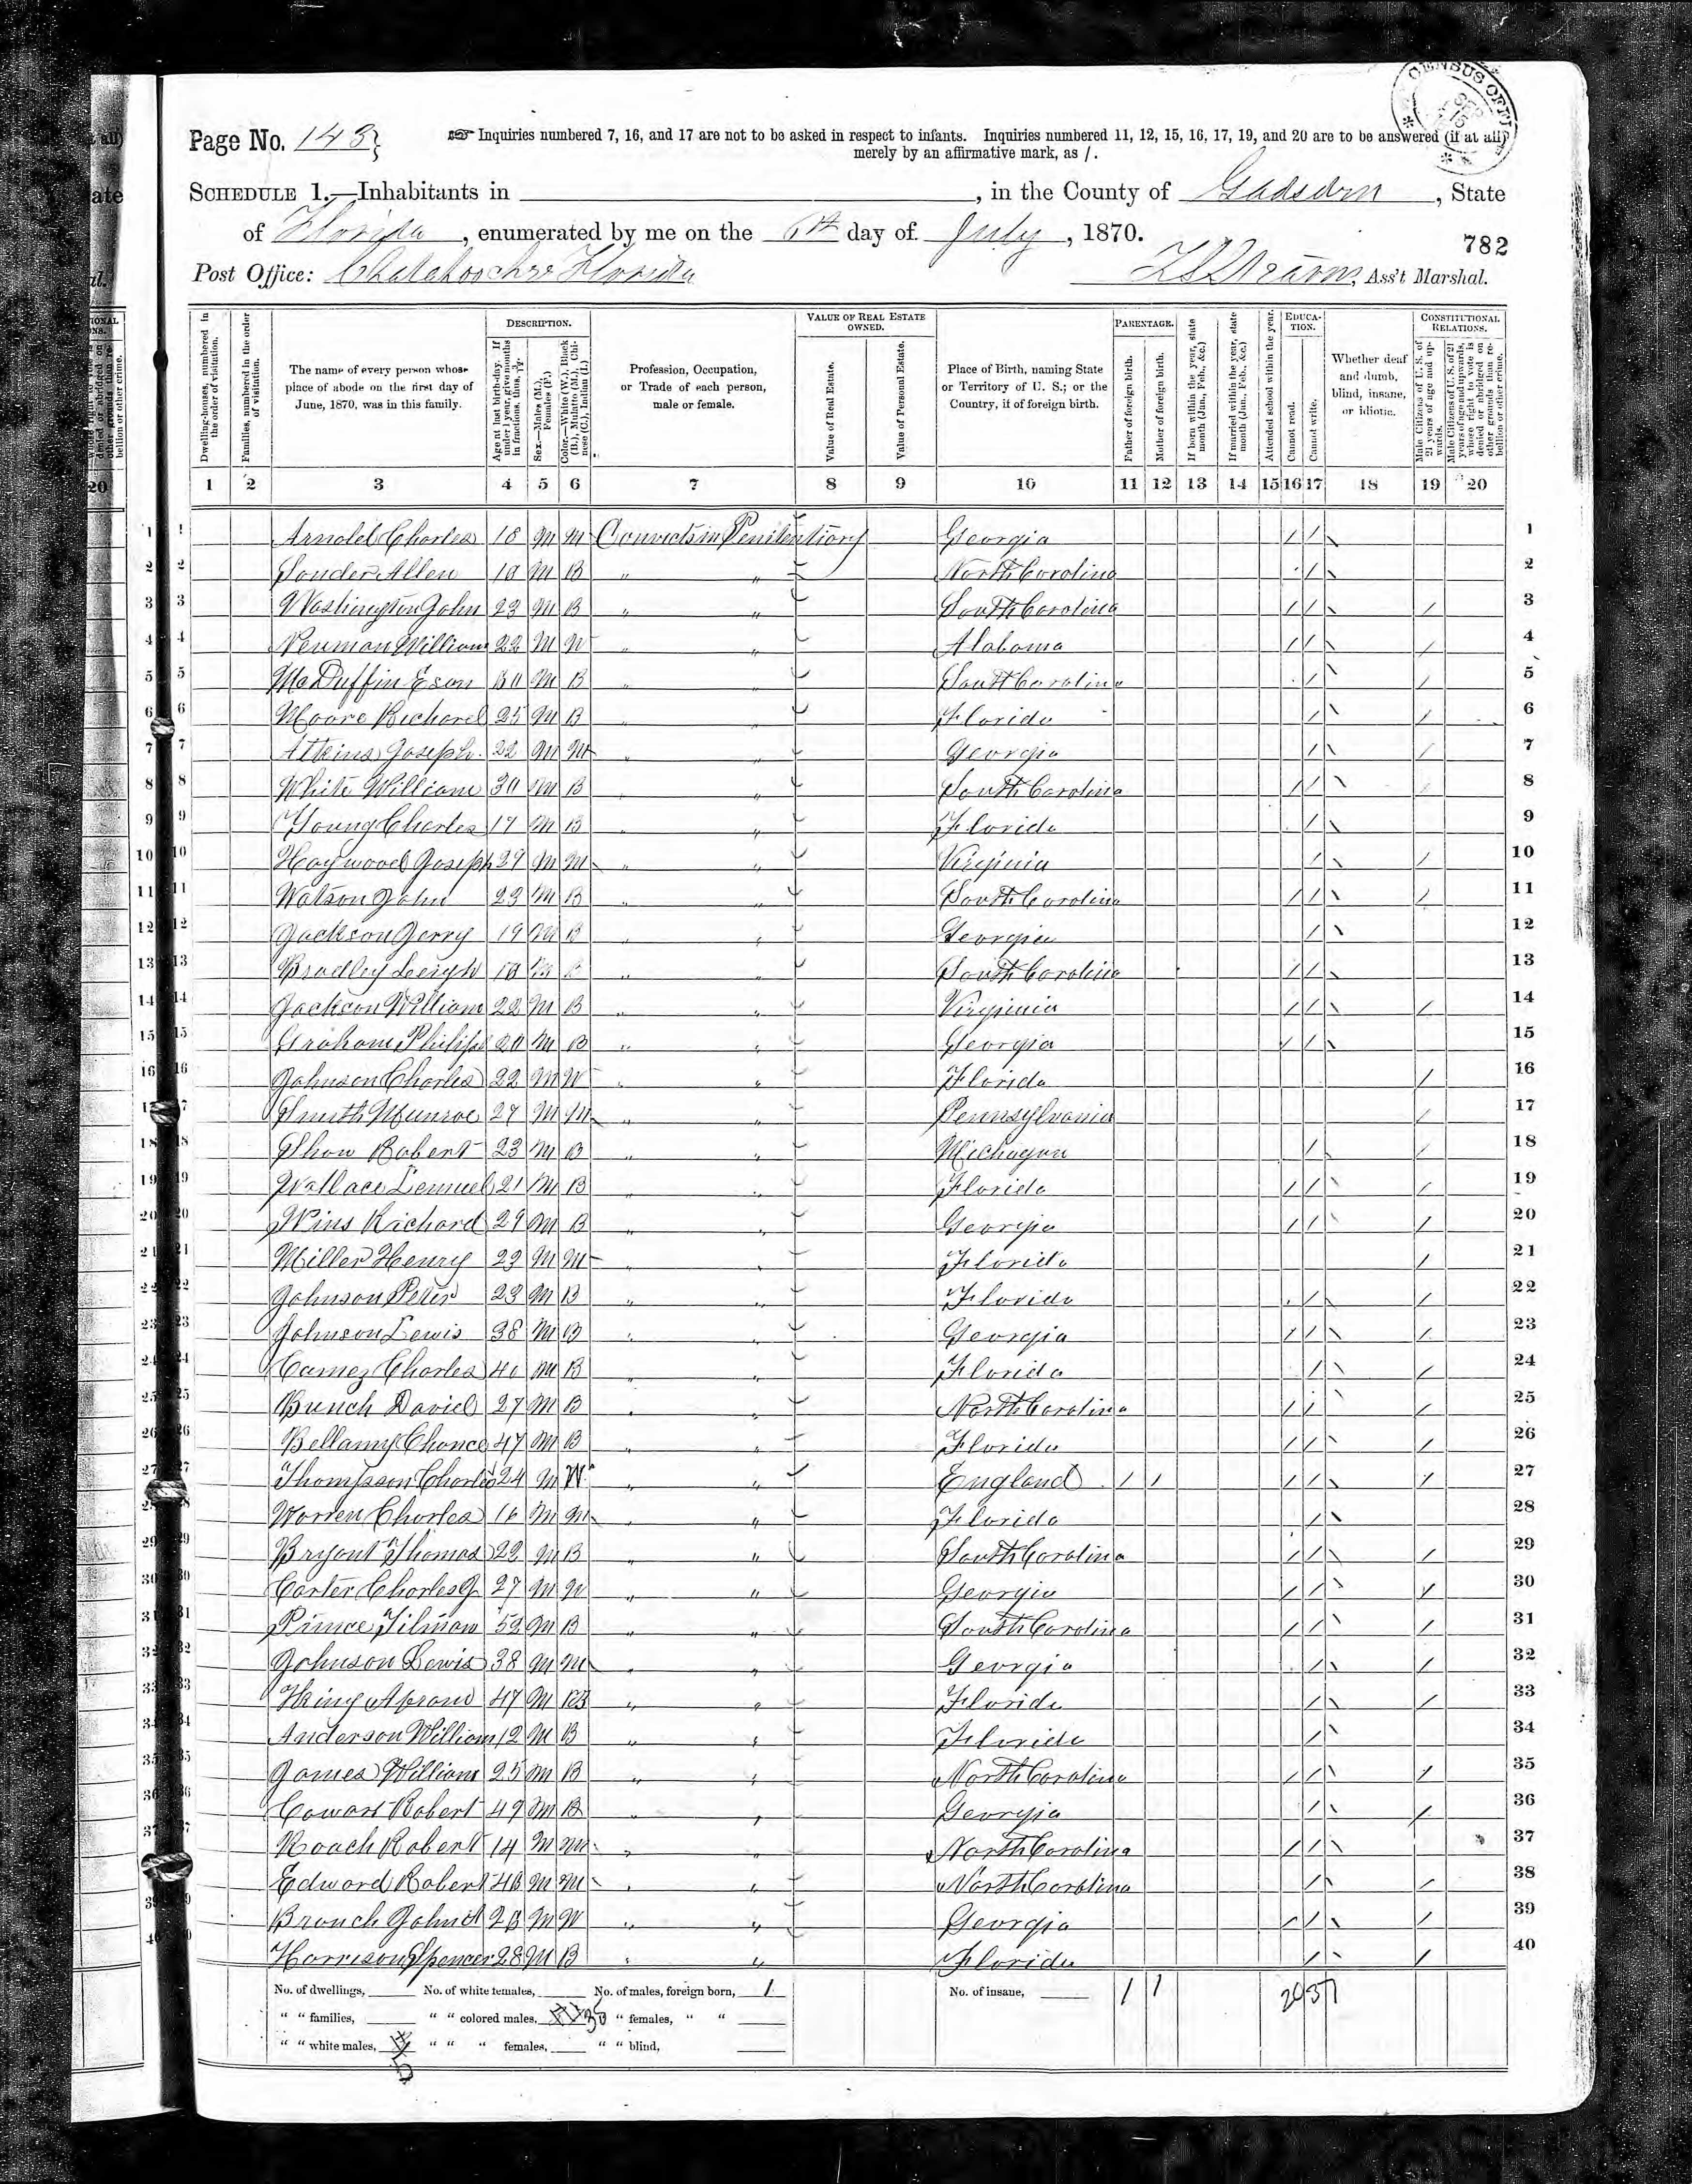 CENSUS OFFI
Page No. 148} Inquiries numbered 7, 16, and 17 are not to be asked in respect to infants. Inquiries numbered 11, 12, 15, 16, 17, 19, and 20 are to be answered (if at all)
merely by an affirmative mark, as /.
SCHEDULE 1.—Inhabitants in , in the County of Gadsden, State
of Florida, enumerated by me on the day of July, 1870.
782
Post Office: Chatahoochee Florida , Ass't Marshal.
Dwelling-houses, numbered in the order of visitation.
Families, numbered in the order of visitation.
The name of every person whose place of abode on the first day of June, 1870, was in this family.
DESCRIPTION.
Age at last birth-day. If under 1 year, give months in fractions, thus, 3/12.
Sex.—Males (M.), Females (F.)
Color.—White (W.), Black (B.), Mulatto (M.), Chinese (C.), Indian (I.)
Profession, Occupation, or Trade of each person, male or female.
VALUE OF REAL ESTATE OWNED.
Value of Real Estate.
Value of Personal Estate.
Place of Birth, naming State or Territory of U. S.; or the Country, if of foreign birth.
PARENTAGE.
Father of foreign birth.
Mother of foreign birth.
If born within the year, state month (Jan., Feb., &c.)
If married within the year, state month (Jan., Feb., &c.)
Attended school within the year.
EDUCATION.
Cannot read.
Cannot write.
Whether deaf and dumb, blind, insane, or idiotic.
CONSTITUTIONAL RELATIONS.
Male Citizens of U. S. of 21 years of age and upwards.
Male Citizens of U. S. of 21 years of age and upwards, where right to vote is denied or abridged on other grounds than rebellion or other crime.
1 2 3 4 5 6 7 8 9 10 11 12 13 14 15 16 17 18 19 20
1 Arnold Charles 18 M M Convicts in Penitentiary Georgia / / 1
2 Souder Allen 18 M B " " North Carolina / 2
3 Washington John 23 M B " " South Carolina / / / 3
4 Neuman William 22 M W " " Alabama / / / 4
5 McDuffin Eson 30 M B " " South Carolina / / 5
6 Moore Richard 25 M B " " Florida / / 6
7 Atkins Joseph 22 M M " " Georgia / / 7
8 White William 30 M B " " South Carolina / / / 8
9 Young Charles 17 M B " " Florida / 9
10 Haywood Joseph 29 M M " " Virginia / / 10
11 Watson John 23 M B " " South Carolina / / / 11
12 Jackson Jerry 19 M B " " Georgia / 12
13 Bradley Leigh 18 M B " " South Carolina / / 13
14 Jackson William 22 M B " " Virginia / / / 14
15 Graham Philip 20 M B " " Georgia / / 15
16 Johnson Charles 22 M W " " Florida / 16
17 Smith Munroe 27 M M " " Pennsylvania / 17
18 Show Robert 23 M B " " Michigan / / 18
19 Wallace Lemuel 21 M B " " Florida / / / 19
20 Wins Richard 29 M B " " Georgia / / / 20
21 Miller Henry 23 M M " " Florida / 21
22 Johnson Peter 23 M B " " Florida / / 22
23 Johnson Lewis 38 M B " " Georgia / / / 23
24 Camez Charles 40 M B " " Florida / / 24
25 Bunch David 27 M B " " North Carolina / / / 25
26 Bellamy Chance 47 M B " " Florida / / / 26
27 Thompson Charles 24 M W " " England / / / / / 27
28 Warren Charles 16 M M " " Florida / 28
29 Bryant Thomas 22 M B " " South Carolina / / / 29
30 Carter Charles J 27 M W " " Georgia / / / 30
31 Prince Tilman 52 M B " " South Carolina / / / 31
32 Johnson Lewis 38 M M " " Georgia / / 32
33 King Abram 47 M B " " Florida / / 33
34 Anderson William 12 M B " " Florida / 34
35 James William 25 M B " " North Carolina / / / 35
36 Cowart Robert 49 M B " " Georgia / / 36
37 Roach Robert 14 M M " " North Carolina / / 37
38 Edward Robert 48 M M " " North Carolina / / 38
39 Branch John 28 M W " " Georgia / / / 39
40 Harrison Spencer 28 M B " " Florida / / 40
No. of dwellings, No. of white females, No. of males, foreign born, 1 No. of insane, / / 20 37
" " families, " " colored males, 35 " " females, " "
" " white males, 5 " " " females, " " blind,